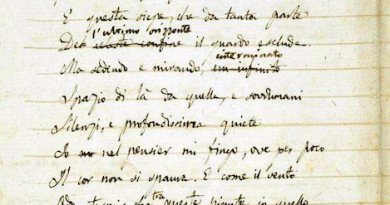 E questa siepe, che da tanta parte
l'ultimo orizzonte
Del celeste confine il guardo esclude.
interminato
Ma sedendo e mirando, un infinito
Spazio di là da quella, e sovrumani
Silenzi, e profondissima quiete
Io nel pensier mi fingo, ove per poco
Il cor non si spaura. E come il vento
tra queste piante, io quello